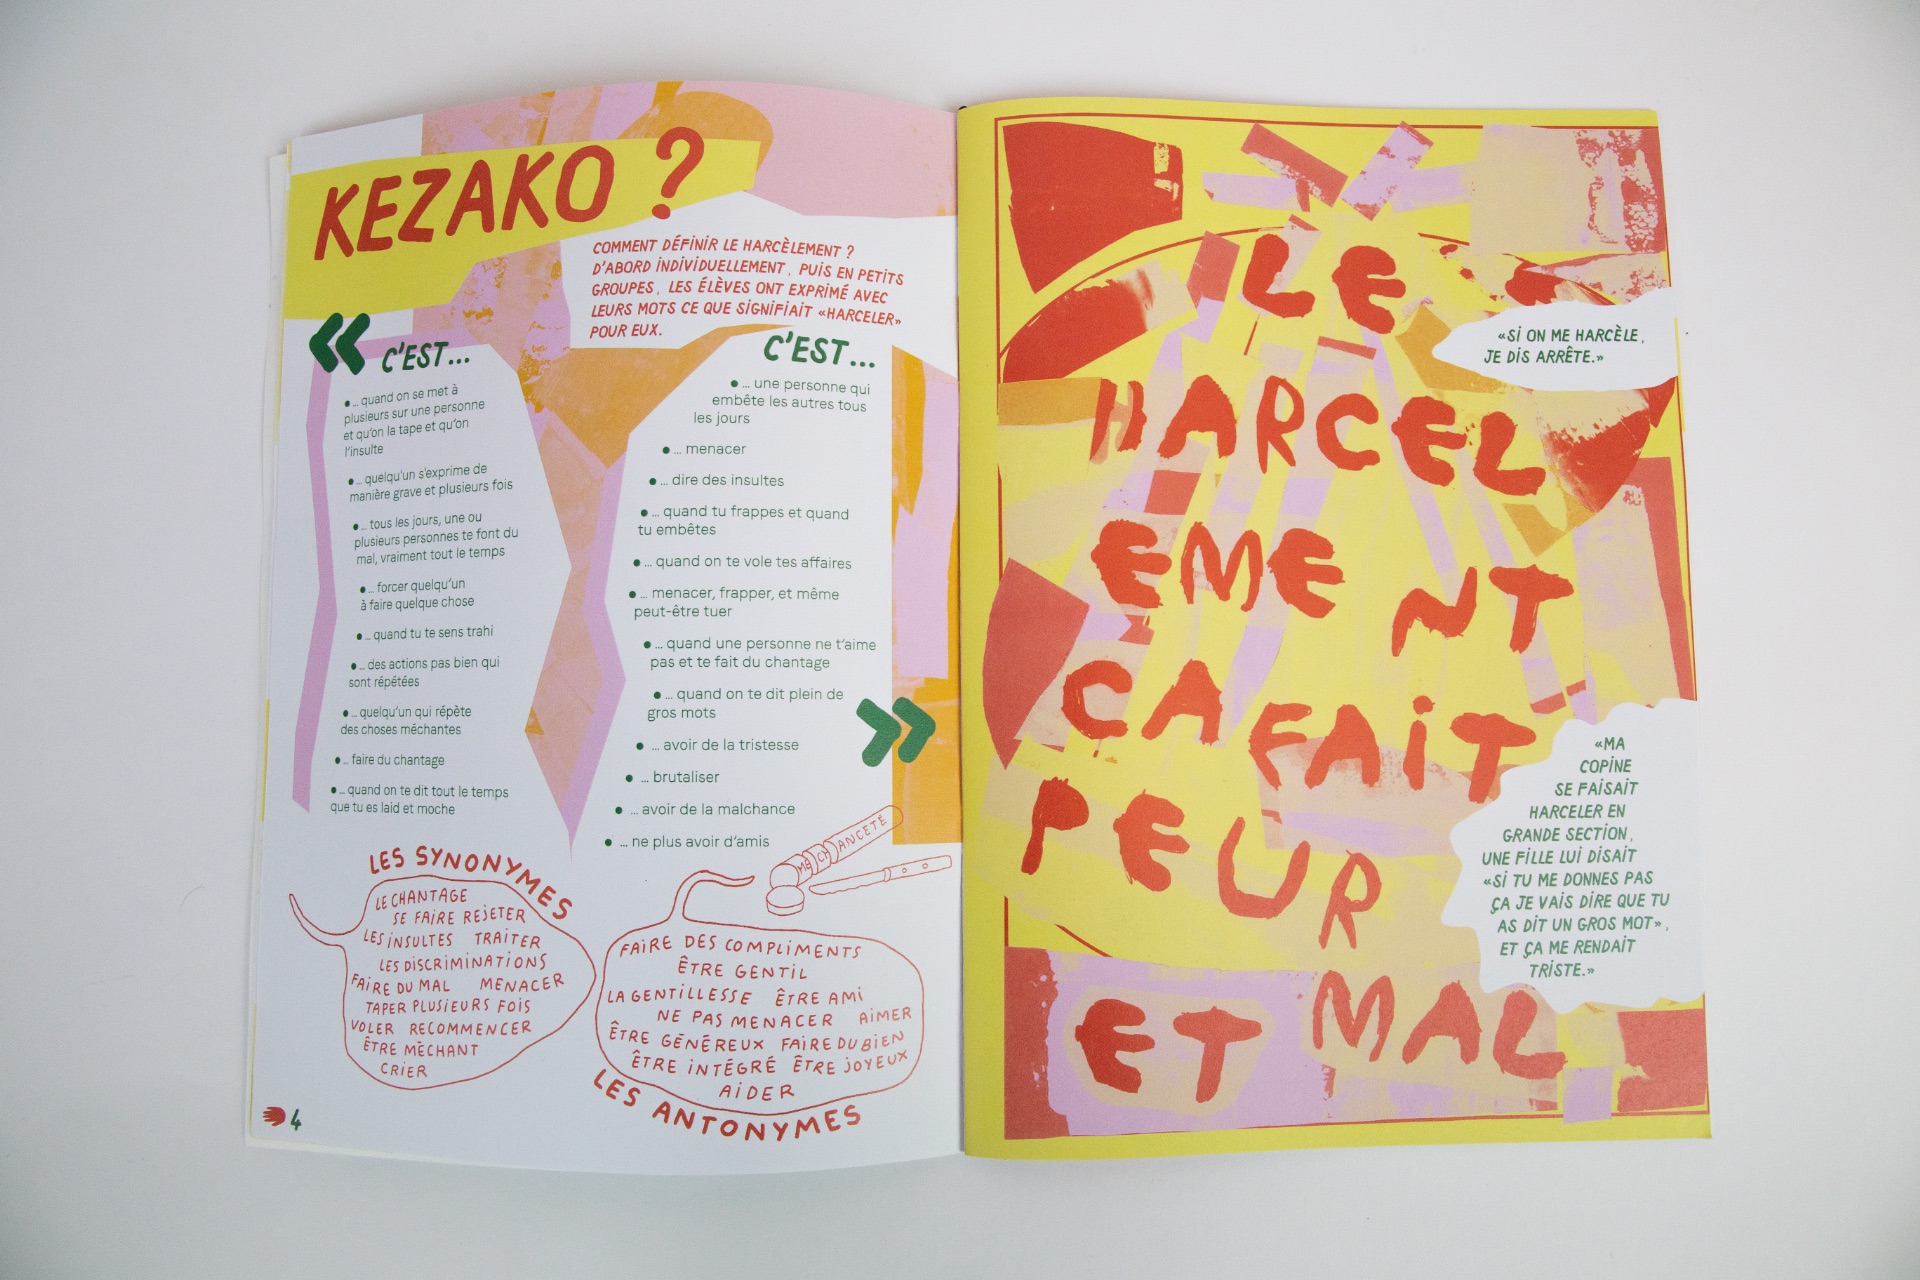 KEZAKO ?
COMMENT DÉFINIR LE HARCÈLEMENT ?
D'ABORD INDIVIDUELLEMENT, PUIS EN PETITS
GROUPES, LES ÉLÈVES ONT EXPRIMÉ AVEC
LEURS MOTS CE QUE SIGNIFIAIT «HARCELER»
POUR EUX.
« C'EST...
• ... quand on se met à
plusieurs sur une personne
et qu'on la tape et qu'on
l'insulte
• ... quelqu'un s'exprime de
manière grave et plusieurs fois
• ... tous les jours, une ou
plusieurs personnes te font du
mal, vraiment tout le temps
• ... forcer quelqu'un
à faire quelque chose
• ... quand tu te sens trahi
• ... des actions pas bien qui
sont répétées
• ... quelqu'un qui répète
des choses méchantes
• ... faire du chantage
• ... quand on te dit tout le temps
que tu es laid et moche
C'EST...
• ... une personne qui
embête les autres tous
les jours
• ... menacer
• ... dire des insultes
• ... quand tu frappes et quand
tu embêtes
• ... quand on te vole tes affaires
• ... menacer, frapper, et même
peut-être tuer
• ... quand une personne ne t'aime
pas et te fait du chantage
• ... quand on te dit plein de
gros mots
»
• ... avoir de la tristesse
• ... brutaliser
• ... avoir de la malchance
• ... ne plus avoir d'amis
MÉCHANCETÉ
LES SYNONYMES
LE CHANTAGE
SE FAIRE REJETER
LES INSULTES TRAITER
LES DISCRIMINATIONS
FAIRE DU MAL MENACER
TAPER PLUSIEURS FOIS
VOLER RECOMMENCER
ÊTRE MÉCHANT
CRIER
FAIRE DES COMPLIMENTS
ÊTRE GENTIL
LA GENTILLESSE ÊTRE AMI
NE PAS MENACER AIMER
ÊTRE GÉNÉREUX FAIRE DU BIEN
ÊTRE INTÉGRÉ ÊTRE JOYEUX
AIDER
LES ANTONYMES
4
LE
HARCEL
EMENT
CA FAIT
PEUR
ET MAL
«SI ON ME HARCÈLE,
JE DIS ARRÊTE.»
«MA
COPINE
SE FAISAIT
HARCELER EN
GRANDE SECTION,
UNE FILLE LUI DISAIT
«SI TU ME DONNES PAS
ÇA JE VAIS DIRE QUE TU
AS DIT UN GROS MOT»,
ET ÇA ME RENDAIT
TRISTE.»